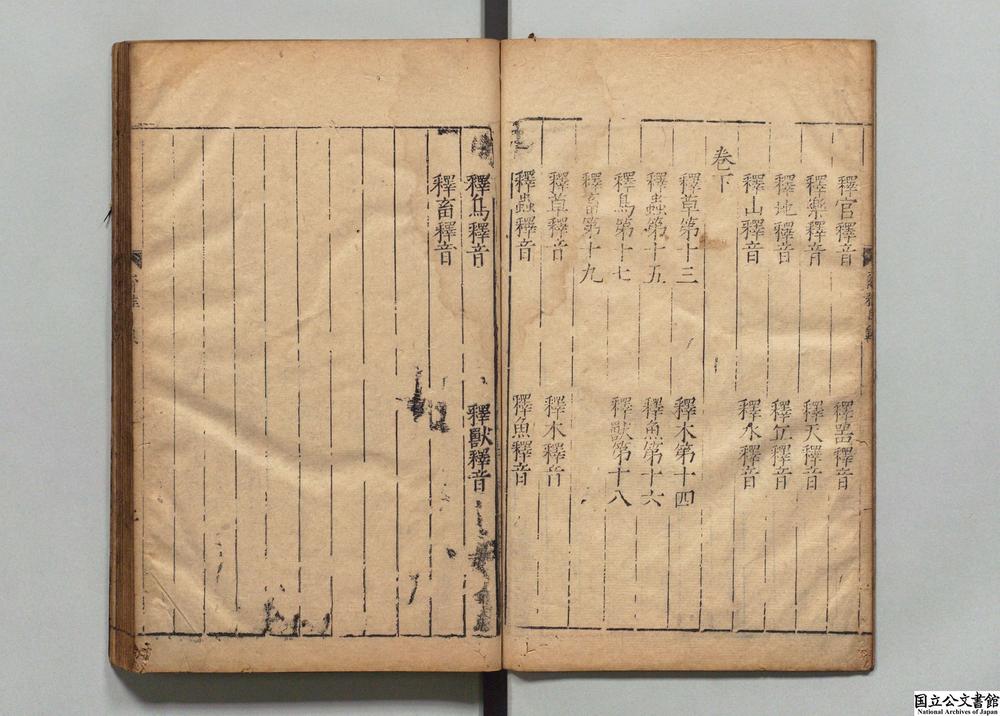 釋宫釋音　釋器釋音
釋樂釋音　釋天釋音
釋地釋音　釋丘釋音
釋山釋音　釋水釋音
卷下
釋草第十三　釋木第十四
釋蟲第十五　釋魚第十六
釋鳥第十七　釋獸第十八
釋畜第十九
釋草釋音　釋木釋音
釋蟲釋音　釋魚釋音
釋鳥釋音　釋獸釋音
釋畜釋音
国立公文書館
National Archives of Japan